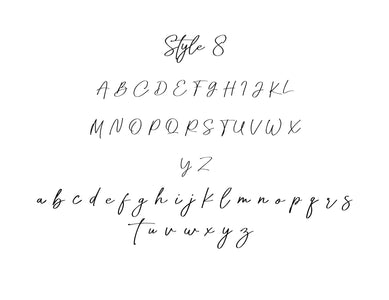 Style 8
A B C D E F G H I J K L
M N O P Q R S T U V W X
Y Z
a b c d e f g h i j k l m n o p q r s
t u v w x y z